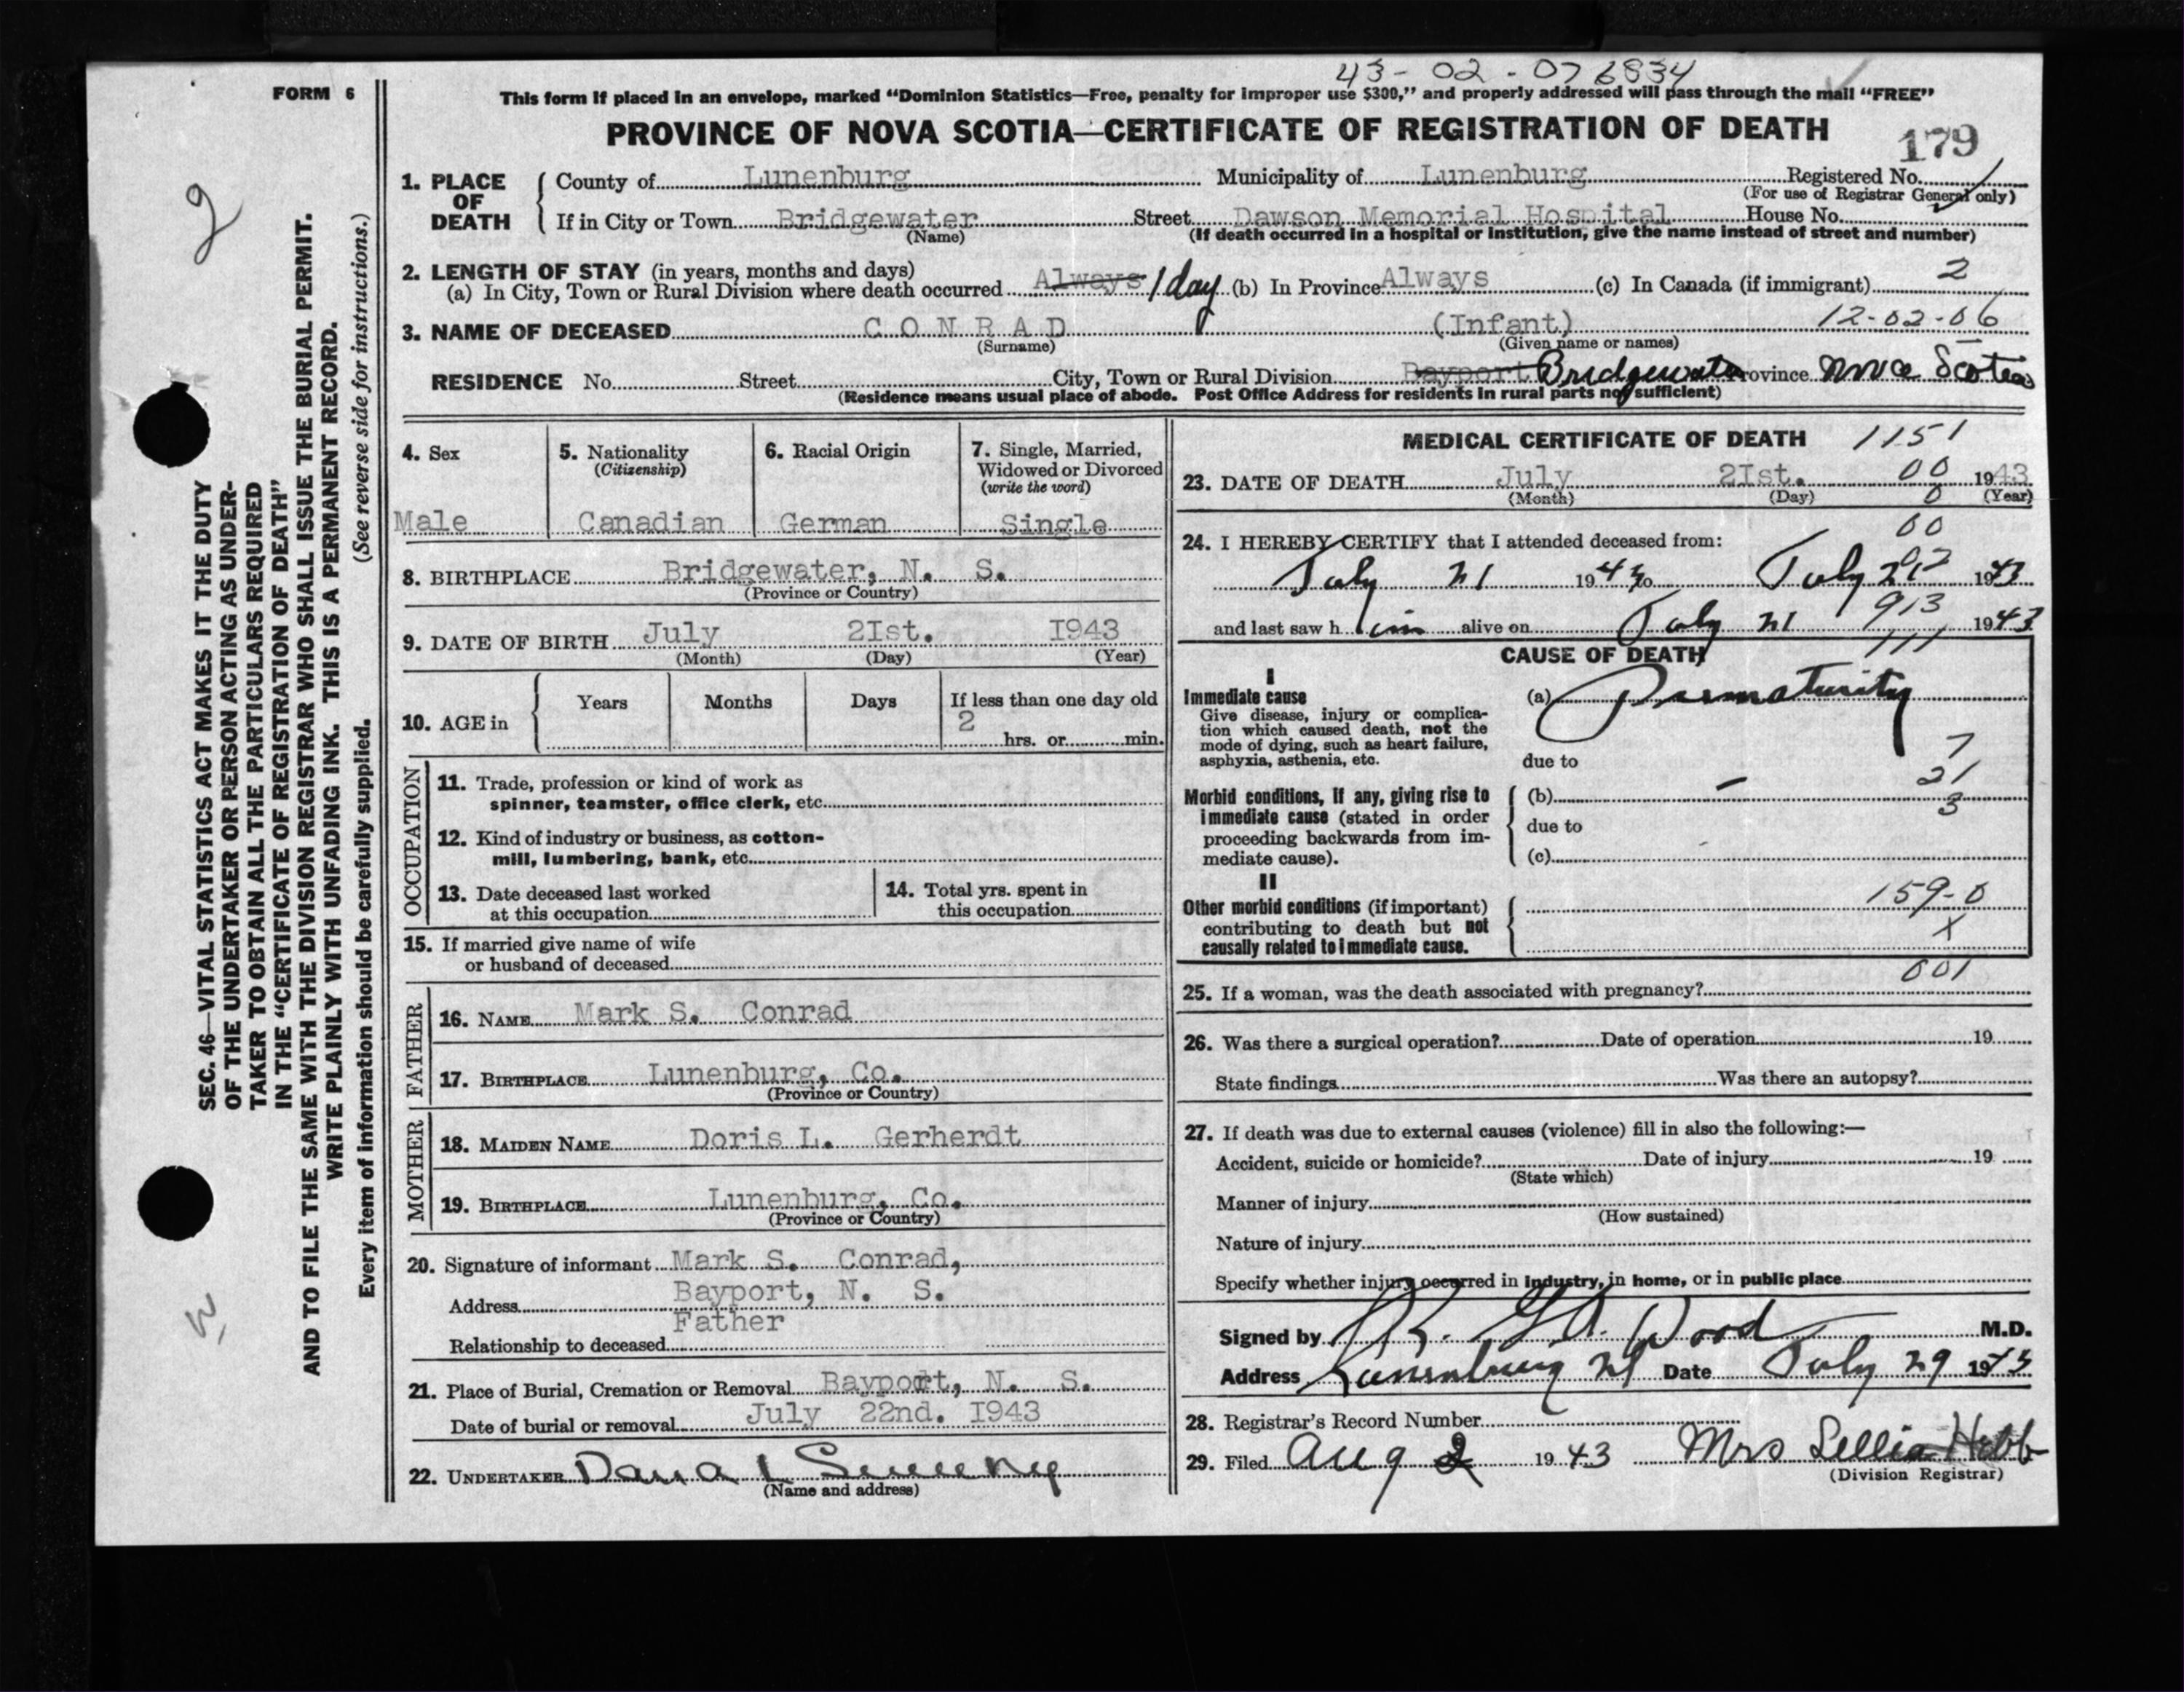 43-02-076834
FORM 6
This form if placed in an envelope, marked "Dominion Statistics—Free, penalty for improper use $300," and properly addressed will pass through the mail "FREE"
PROVINCE OF NOVA SCOTIA—CERTIFICATE OF REGISTRATION OF DEATH
179
1. PLACE OF DEATH
County of Lunenburg Municipality of Lunenburg Registered No.
(For use of Registrar General only)
If in City or Town Bridgewater Street Dawson Memorial Hospital House No.
(Name) (If death occurred in a hospital or institution, give the name instead of street and number)
2. LENGTH OF STAY (in years, months and days)
(a) In City, Town or Rural Division where death occurred Always 1 day (b) In Province Always (c) In Canada (if immigrant) 2
3. NAME OF DECEASED CONRAD (Infant) 12-02-06
(Surname) (Given name or names)
RESIDENCE No. Street City, Town or Rural Division Bayport Bridgewater Province Nova Scotia
(Residence means usual place of abode. Post Office Address for residents in rural parts not sufficient)
4. Sex
Male
5. Nationality
(Citizenship)
Canadian
6. Racial Origin
German
7. Single, Married,
Widowed or Divorced
(write the word)
Single
8. BIRTHPLACE Bridgewater, N. S.
(Province or Country)
9. DATE OF BIRTH July 2Ist. I943
(Month) (Day) (Year)
10. AGE in
Years Months Days If less than one day old
2 hrs. or min.
OCCUPATION
11. Trade, profession or kind of work as
spinner, teamster, office clerk, etc.
12. Kind of industry or business, as cotton-
mill, lumbering, bank, etc.
13. Date deceased last worked
at this occupation
14. Total yrs. spent in
this occupation
15. If married give name of wife
or husband of deceased
FATHER
16. NAME Mark S. Conrad
17. BIRTHPLACE Lunenburg, Co.
(Province or Country)
MOTHER
18. MAIDEN NAME Doris L. Gerherdt
19. BIRTHPLACE Lunenburg, Co.
(Province or Country)
20. Signature of informant Mark S. Conrad,
Address Bayport, N. S.
Relationship to deceased Father
21. Place of Burial, Cremation or Removal Bayport, N. S.
Date of burial or removal July 22nd. I943
22. UNDERTAKER Dana L Sweeny
(Name and address)
MEDICAL CERTIFICATE OF DEATH 1151
23. DATE OF DEATH July 2Ist. 00 1943
(Month) (Day) 0 (Year)
00
24. I HEREBY CERTIFY that I attended deceased from:
July 21 1943 to July 21 1943
and last saw h im alive on July 21 913 1943
CAUSE OF DEATH 111
I
Immediate cause
Give disease, injury or complica-
tion which caused death, not the
mode of dying, such as heart failure,
asphyxia, asthenia, etc.
(a) Prematurity
due to 7
21
Morbid conditions, if any, giving rise to
immediate cause (stated in order
proceeding backwards from im-
mediate cause).
(b) - 3
due to
(c)
II
Other morbid conditions (if important)
contributing to death but not
causally related to immediate cause.
159-0
X
001
25. If a woman, was the death associated with pregnancy?
26. Was there a surgical operation? Date of operation 19
State findings Was there an autopsy?
27. If death was due to external causes (violence) fill in also the following:—
Accident, suicide or homicide? Date of injury 19
(State which)
Manner of injury
(How sustained)
Nature of injury
Specify whether injury occurred in industry, in home, or in public place
Signed by R. G. A. Wood M.D.
Address Lunenburg NS Date July 29 1943
28. Registrar's Record Number
29. Filed Aug 2 1943 Mrs Lellia Hebb
(Division Registrar)
2
SEC. 46—VITAL STATISTICS ACT MAKES IT THE DUTY
OF THE UNDERTAKER OR PERSON ACTING AS UNDER-
TAKER TO OBTAIN ALL THE PARTICULARS REQUIRED
IN THE "CERTIFICATE OF REGISTRATION OF DEATH"
AND TO FILE THE SAME WITH THE DIVISION REGISTRAR WHO SHALL ISSUE THE BURIAL PERMIT.
WRITE PLAINLY WITH UNFADING INK. THIS IS A PERMANENT RECORD.
Every item of information should be carefully supplied. (See reverse side for instructions.)